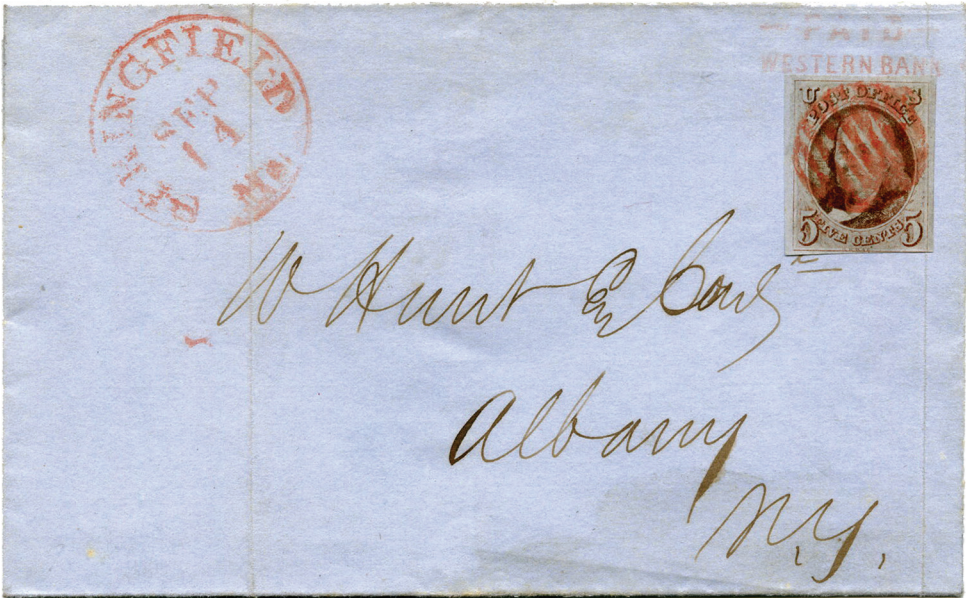 SPRINGFIELD
SEP
14
PAID
WESTERN BANK
U S
POST OFFICE
5 FIVE CENTS 5
W Hunt Esq
Albany
N.Y.